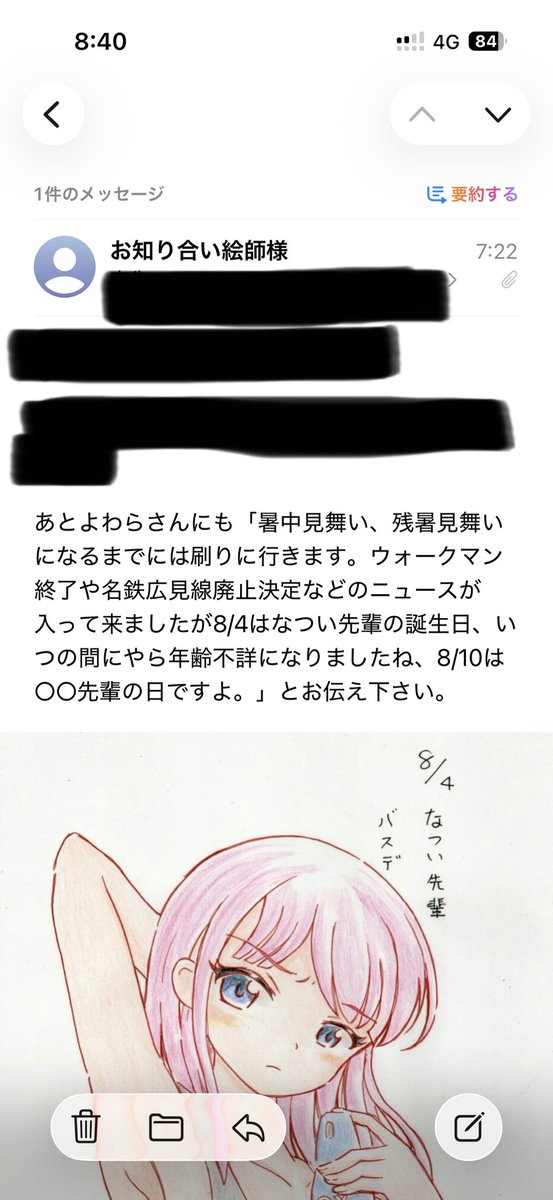 8:40
4G 84
1件のメッセージ
要約する
お知り合い絵師様
7:22
あとよわらさんにも「暑中見舞い、残暑見舞い
になるまでには刷りに行きます。ウォークマン
終了や名鉄広見線廃止決定などのニュースが
入って来ましたが8/4はなつい先輩の誕生日、い
つの間にやら年齢不詳になりましたね、8/10は
〇〇先輩の日ですよ。」とお伝え下さい。
8/4
なつい先輩
バスデ